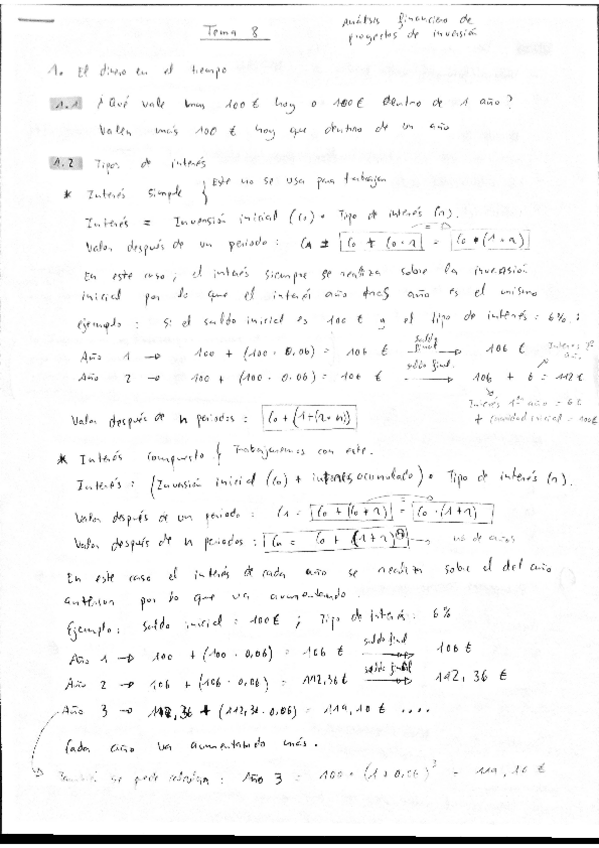 Tema 8
Análisis financiero de
proyectos de inversión
1. El dinero en el tiempo
1.1 ¿Qué vale mas 100 € hoy o 100 € dentro de 1 año?
Valen más 100 € hoy que dentro de un año
1.2 Tipos de interés
* Interés simple { Este no se usa para trabajar
Interés = Inversión inicial (C0) · Tipo de interés (r).
Valor después de un periodo:
En este caso, el interés siempre se realiza sobre la inversión
inicial por lo que el interés año tras año es el mismo
ejemplo: Si el saldo inicial es 100 € y el tipo de interés: 6%:
Año 1 → 100 + (100 · 0,06) = 106 € saldo final → 106 €
Año 2 → 100 + (100 · 0.06) = 106 € saldo final → 106 + 6 = 112 €
Interés 1er año = 6€
+ cantidad inicial = 100€
Valor después de n periodos:
* Interés compuesto { Trabajaremos con este.
Interés: (Inversión inicial (C0) + interés acumulado) · Tipo de interés (r).
Valor después de un periodo:
Valor después de n periodos: → nº de años
En este caso el interés de cada año se realiza sobre el del año
anterior por lo que va aumentando.
Ejemplo: Saldo inicial = 100€ ; Tipo de interés: 6%
Año 1 → 100 + (100 · 0,06) = 106 € saldo final → 106 €
Año 2 → 106 + (106 · 0,06) = 112,36€ saldo final → 112,36 €
Año 3 → 112,36 + (112,36 · 0,06) = 119,10 € ....
Cada año va aumentando más.
También se puede calcular: Año 3 = 100 · (1+0,06)³ = 119,10 €